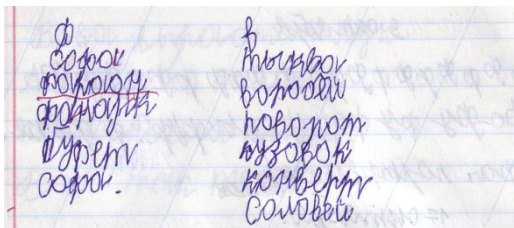 ф
софа
фартук
буфет
софа.
в
тыква
воробей
поворот
кузовок
конверт
соловей